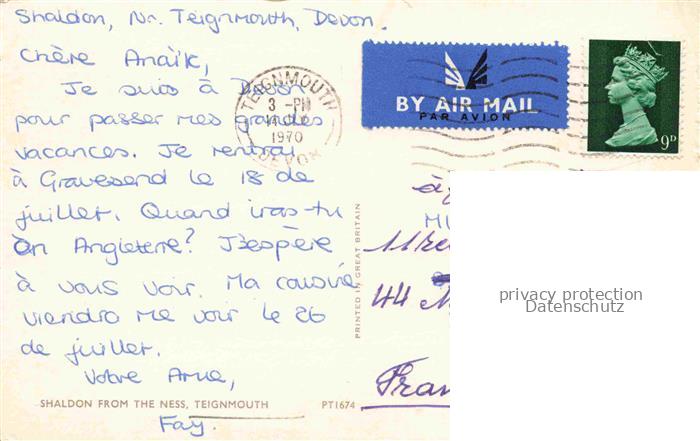 Shaldon, Nr. Teignmouth, Devon.
Chère Anaïk,
Je suis à Devon
pour passer mes grandes
vacances. Je rentrai
à Gravesend le 18 de
juillet. Quand iras-tu
en Angleterre? J'espère
à vous voir. Ma cousine
viendra me voir le 26
de juillet.
Votre Amie,
Fay.
SHALDON FROM THE NESS, TEIGNMOUTH PT1674
PRINTED IN GREAT BRITAIN
TEIGNMOUTH
3 -PM
1970
DEVON
BY AIR MAIL
PAR AVION
9D
44
privacy protection
Datenschutz